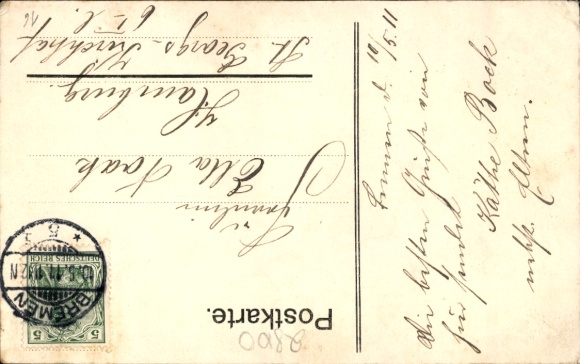 Postkarte.
Fräulein
Ella Haak
Hamburg.
St. Georgs-Kirchhof
6 I. l.
Bremen d. 10/5.11
Die besten Grüße von
hier sendet
Käthe Bock
nebst Eltern.
DEUTSCHES REICH
5
5
BREMEN
* 5 *
2800
16